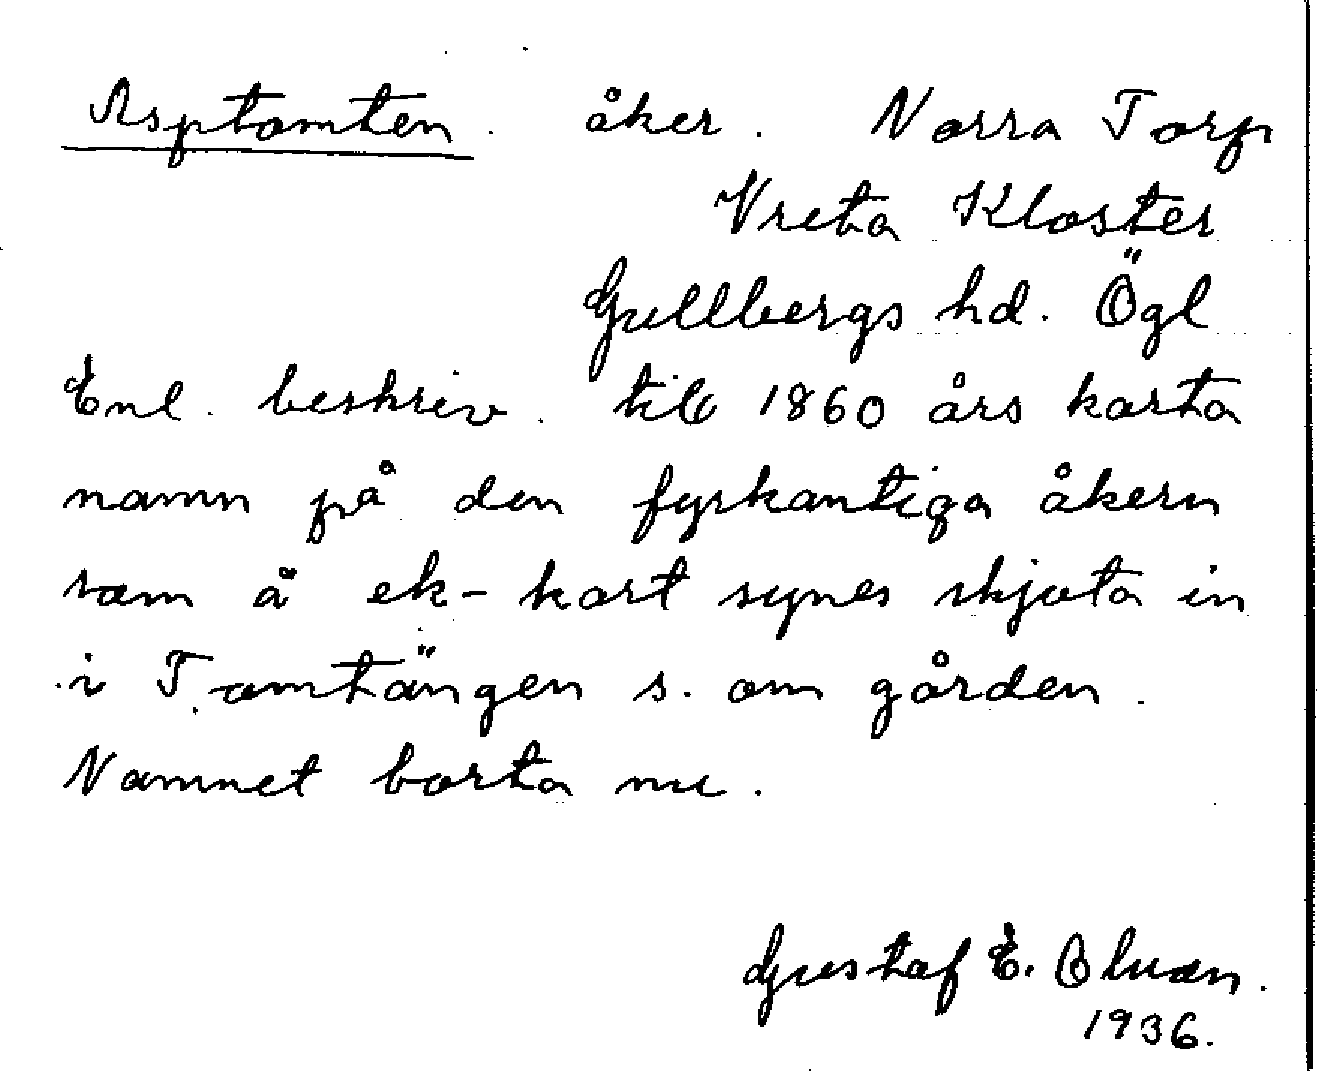 Asptomten. åker. Norra Torp
Vreta Kloster
Gullbergs hd. Ögl
Enl. beskriv. till 1860 års karta
namn på den fyrkantiga åkern
som å ek-kart synes skjuta in
i Tomtängen s. om gården.
Namnet borta nu.
Gustaf E.
1936.